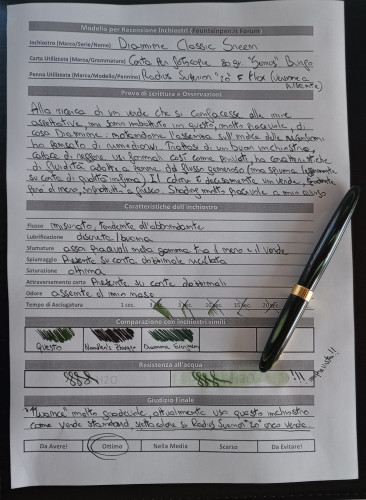 Modello per Recensione Inchiostri (Fountainpen.it Forum)
Inchiostro (Marca/Serie/Nome) Diamine Classic Green
Carta Utilizzata (Marca/Grammatura) Carta per fotocopie 80 gr
Penna Utilizzata (Marca/Modello/Pennino) Radius Superior F Flex
Prova di scrittura e Osservazioni
Alla ricerca di un verde che si confacesse alle mie
aspettative, mi sono imbattuto in questo, molto piacevole, di
casa Diamine; notandone l'assenza
ho pensato di rimediarvi. Trattasi di un buon inchiostro,
capace di reggere usi formali così come privati, ha caratteristiche
di fluidità adatte a penne dal flusso generoso (ma spiuma leggermente
su carta di qualità infima). Il colore è decisamente un verde, tendente
però al nero, soprattutto a flusso. Shading molto piacevole a mio avviso
Caratteristiche dell'inchiostro
Flusso misurato, tendente all'abbondante
Lubrificazione discreta/buona
Sfumature assai piacevoli nella gamma tra il nero e il verde
Spiumaggio Presente su carta dobbimale
Saturazione ottima
Attraversamento carta Presente su carte dobbimali
Odore assente al mio naso
Tempo di Asciugatura 1 sec. 3 sec. 5 sec. 10 sec. 15 sec. 20 sec.
Comparazione con inchiostri simili
Questo Diamine Evergreen
Resistenza all'acqua
Giudizio Finale
"Nuance" molto gradevole, attualmente uso questo inchiostro
come verde standard
Da Avere! Ottimo Nella Media Scarso Da Evitare!